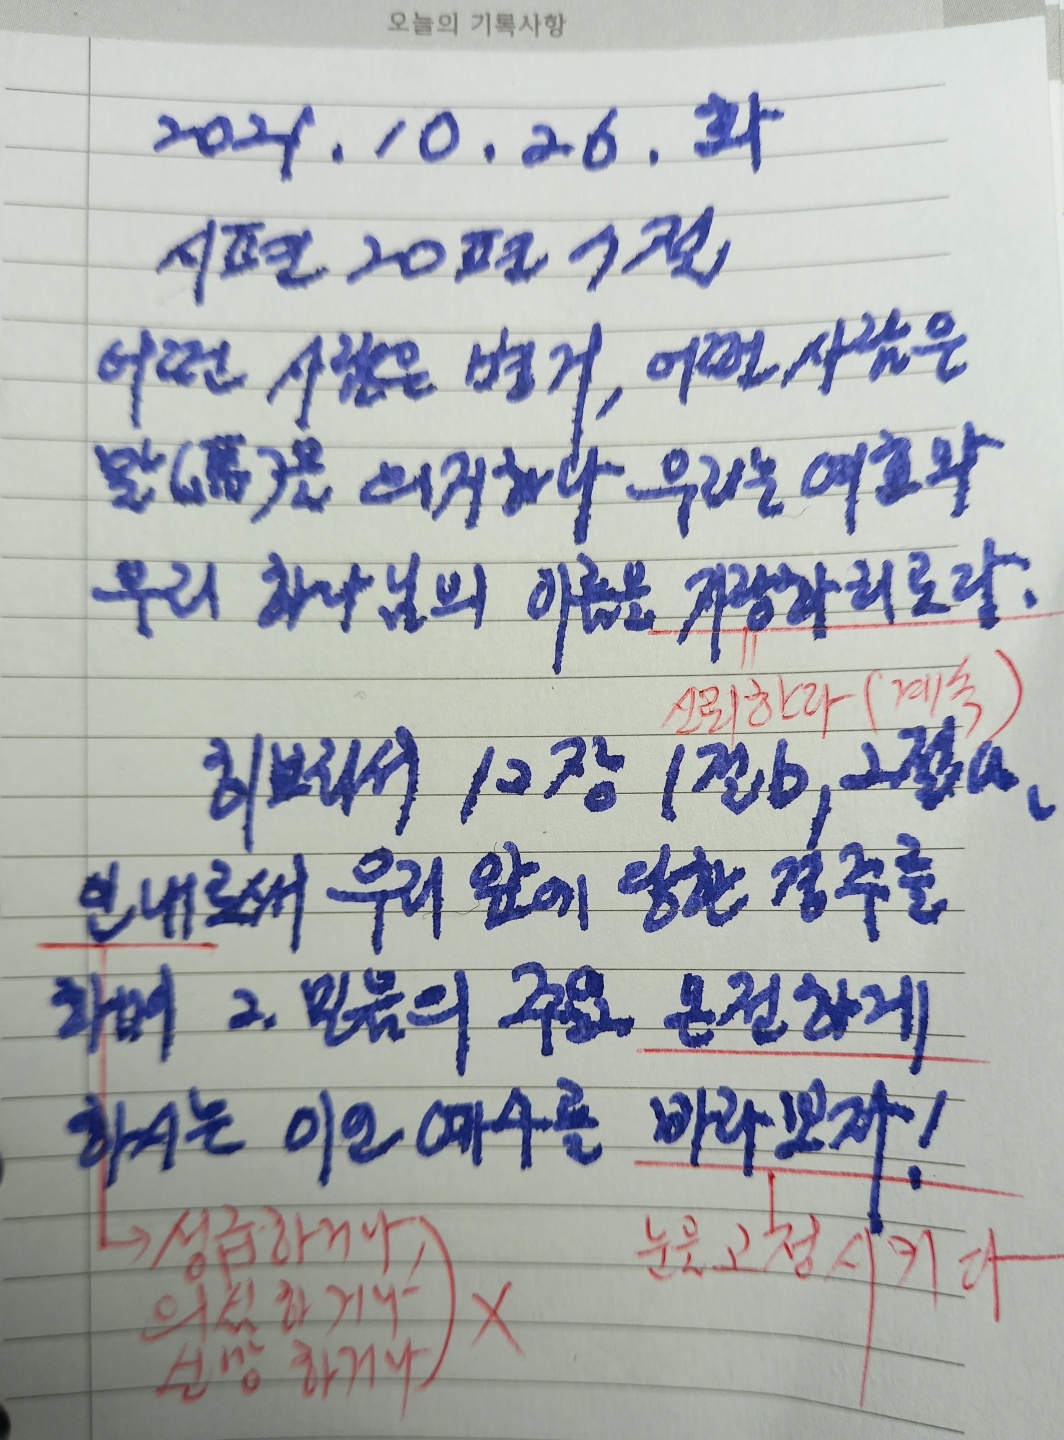 오늘의 기록사항
2021. 10. 26. 화
시편 20편 7절
어떤 사람은 병거, 어떤 사람은
말(馬)을 의지하나 우리는 여호와
우리 하나님의 이름을 자랑하리로다.
신뢰한다 (계속)
히브리서 12장 1절b, 2절a,
인내로써 우리 앞에 당한 경주를
하며 2. 믿음의 주요 온전하게
하시는 이인 예수를 바라보자!
성급하거나, 눈을 고정시키다
의심하거나 X
실망하거나